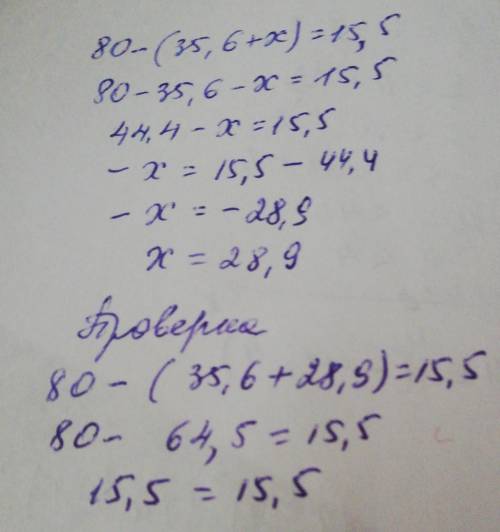 80-(35,6+x)=15,5
80-35,6-x=15,5
44,4-x=15,5
-x=15,5-44,4
-x=-28,9
x=28,9
Проверка
80-(35,6+28,9)=15,5
80-64,5=15,5
15,5=15,5